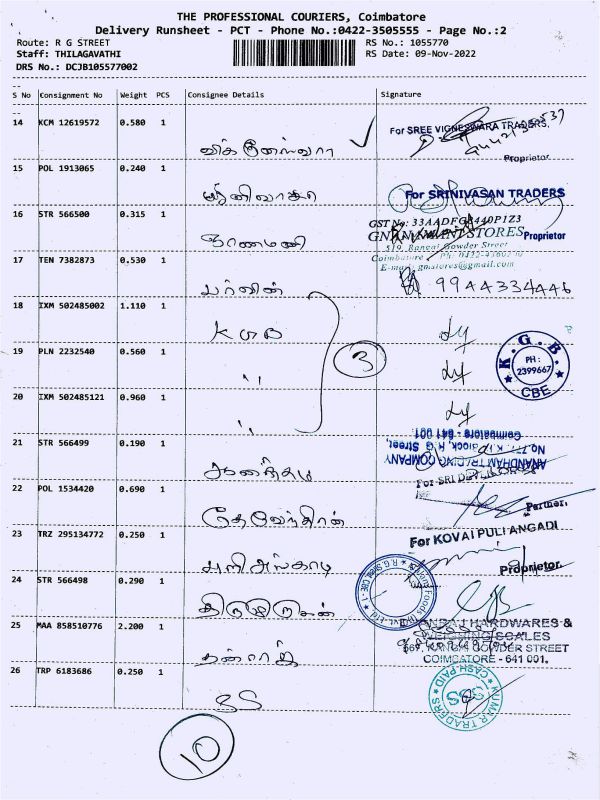 THE PROFESSIONAL COURIERS, Coimbatore
Delivery Runsheet - PCT - Phone No.:0422-3505555 - Page No.:2
Route: R G STREET
RS No.: 1055770
Staff: THILAGAVATHI
RS Date: 09-Nov-2022
DRS No.: DCJB105577002
S No Consignment No Weight PCS Consignee Details Signature
14 KCM 12619572 0.580 1
விக்னேஸ்வரா
For SREE VIGNESWARA TRADERS,
Proprietor
15 POL 1913065 0.240 1
For SRINIVASAN TRADERS
Proprietor
16 STR 566500 0.315 1
ஞானமணி
GST No: 33AADFG
GNANAMANI STORES
519, Rangai Gowder Street
Coimbatore
E-mail: gmstores@gmail.com
17 TEN 7382873 0.530 1
9944334446
18 IXM 502485002 1.110 1
KGB
19 PLN 2232540 0.560 1
"
3
K.G.B.
PH :
2399667
CBE
20 IXM 502485121 0.960 1
"
21 STR 566499 0.190 1
ANANDHAM TRADING COMPANY
Coimbatore - 641 001
22 POL 1534420 0.690 1
தேவேந்திரன்
For SRI
Partner.
23 TRZ 295134772 0.250 1
புளி அங்காடி
For KOVAI PULI ANGADI
Proprietor.
24 STR 566498 0.290 1
திருமுருகன்
25 MAA 858510776 2.200 1
தன்ராஜ்
HARDWARES &
WEIGHING SCALES
GOWDER STREET
COIMBATORE - 641 001.
26 TRP 6183686 0.250 1
SS
KUMAR TRADERS
CASH PAID
10